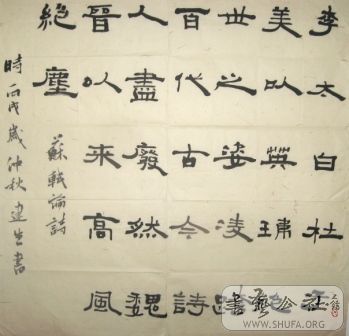 李太白杜子
美以英瑋絕
世之姿凌跨
百代古今詩
人盡廢然魏
晉以來高風
絕塵
蘇軾論詩
時丙戌歲仲秋建生書
書藝公社
WWW.SHUFA.ORG